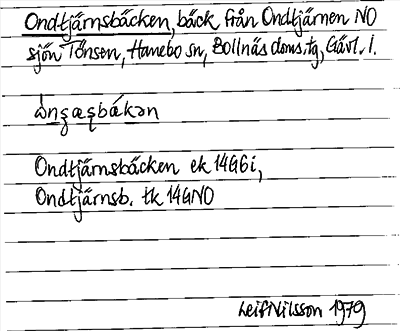 Ondtjärnsbäcken, bäck från Ondtjärnen NO
sjön Tönsen, Hanebo sn, Bollnäs doms.tg, Gävl. l.
Ondtjärnsbäcken ek 14G6i,
Ondtjärnsb. tk 14GNO
Leif Nilsson 1979